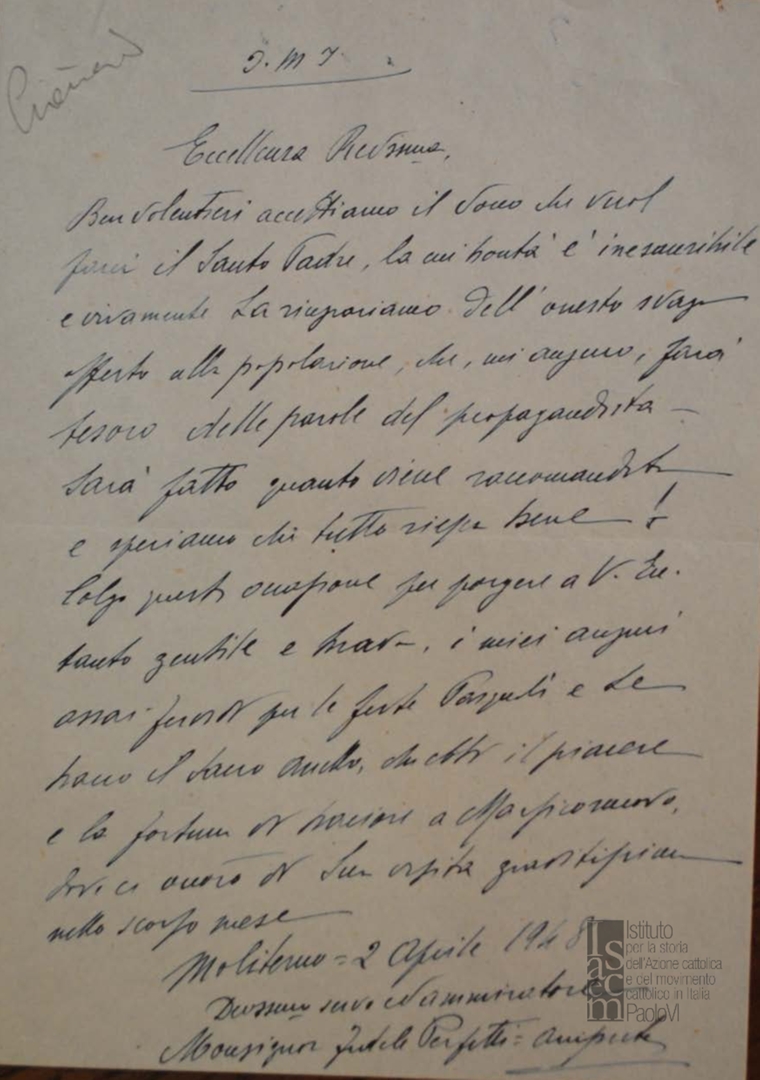 J. M J.
Eccellenza Rev.ssma,
Ben volentieri accettiamo il dono che vuol
farci il Santo Padre, la cui bontà è inesauribile
e vivamente La ringraziamo dell'onesto svago
offerto alla popolazione, che, mi auguro, farà
tesoro delle parole del propagandista –
Sarà fatto quanto viene raccomandato
e speriamo che tutto riesca bene!
Colgo questa occasione per porgere a V. Ecc.
tanto gentile e brava, i miei auguri
assai fervidi per le feste Pasquali e Le
bacio il Sacro Anello, che ebbi il piacere
e la fortuna di baciare a Marsiconuovo,
dove ci onorò di Sua visita graditissima
nello scorso mese
Moliterno = 2 Aprile 1948
Dev.ssmo servo ed ammiratore
Monsignor Fedele Perfetti =
Istituto
per la storia
dell'Azione cattolica
e del movimento
cattolico in Italia
PaoloVI
Isacem